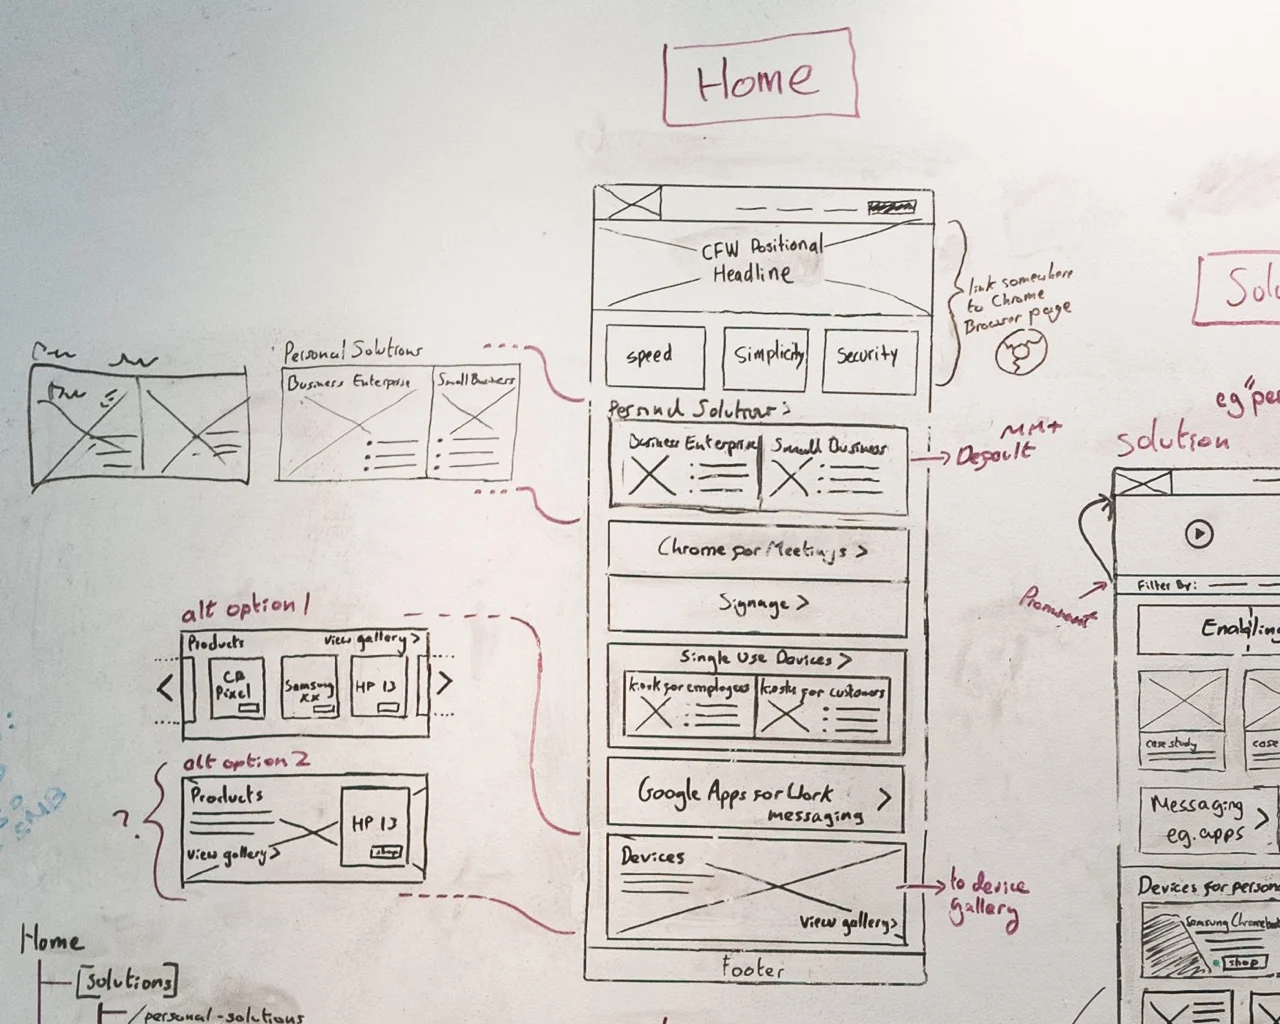 Home
CFW Positional
Headline
link somewhere
to Chrome
Browser page
speed
Simplicity
Security
Personal Solutions
Business Enterprise
Small Business
Personal Solutions >
Business Enterprise
Small Business
MM+
Default
Chrome for Meetings >
Signage >
Single Use Devices >
kiosk for employees
kiosks for customers
Google Apps for Work
messaging
>
Devices
View gallery>
to device
gallery
Footer
alt option 1
Products
view gallery >
<
CB
Pixel
Samsung
XX
HP 13
>
alt option 2
?
Products
View gallery>
HP 13
shop
SMB
Home
[Solutions]
/personal-solutions
Solu
eg "per
Solution
Filter By:
Prominent
Enabling
case study
case
Messaging
eg. apps
>
Devices for persona
Samsung Chromebook
shop